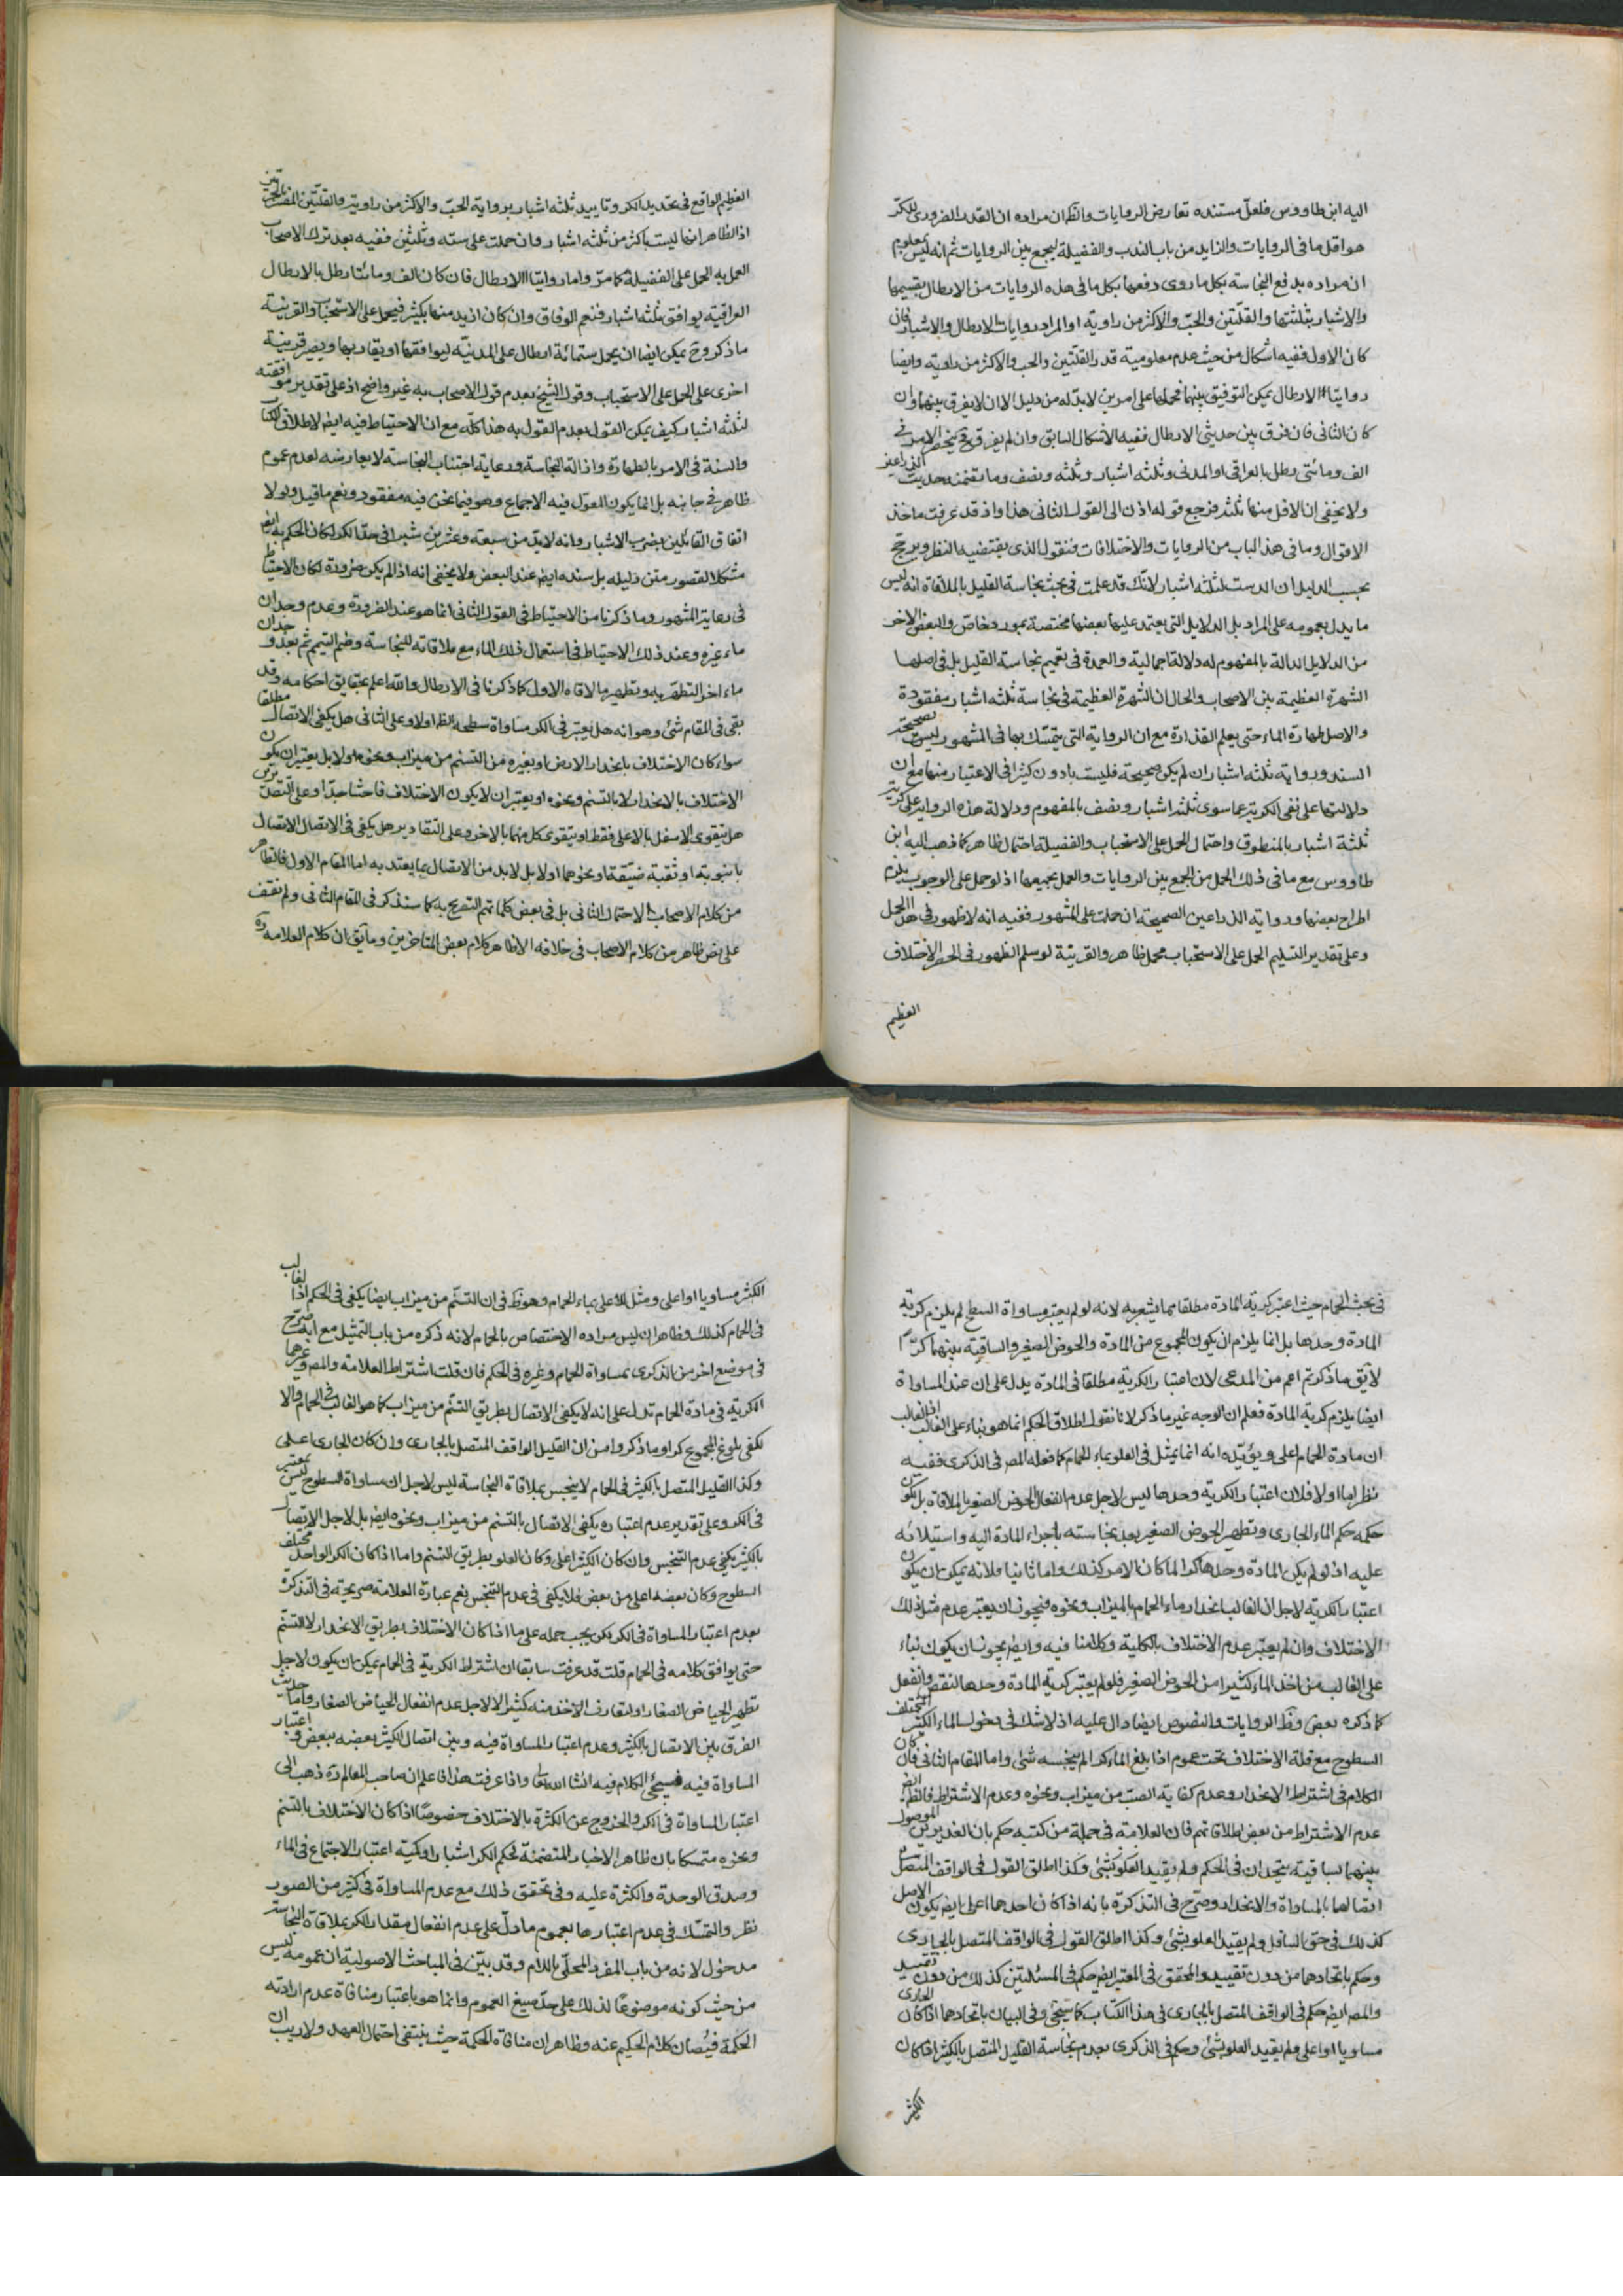 اليه ابن طاووس فلعل مستنده تعارض الروايات والظ ان مراده ان القدر الضروري للكر
هو اقل ما في الروايات والزايد من باب الندب والفضيلة ليجمع بين الروايات ثم انه ليس بمعلوم
ان مراده بدفع النجاسة بكل ما روى دفعها بكل ما في هذه الروايات من الارطال بقسيميها
والاشبار بثلثتها والقلتين والحب والاكثر من راوية او المراد روايات الارطال والاشبار فان
كان الاول ففيه اشكال من حيث عدم معلومية قدر القلتين والحب والاكثر من راويه وايضا
روايتا الارطال يمكن التوفيق بينهما فحملها على امرين لابد له من دليل الا ان لا يفرق بينهما وان
كان الثاني فان فرق بين حديثي الارطال ففيه الاشكال السابق وان لم يفرق فح ينحصر الامر في
الف ومائتي رطل بالعراقي او المدني وثلثه اشبار وثلثه ونصف وما تضمنه حديث الذراعين
ولا يخفى ان الاقل منها ثلثه فرجع قوله اذن الى القول الثاني هذا واذ قد عرفت ماخذ
الاقوال وما في هذا الباب من الروايات والاختلافات فنقول الذي يقتضيه النظر ويرجح
بحسب الدليل ان الدست لثلثه اشبار لانك قد علمت في بحث نجاسة القليل بالملاقاة انه ليس
ما يدل بعمومه على المراد بل الدلايل التي يعتمد عليها بعضها مختصة بمورد خاص والبعض الاخر
من الدلايل الدالة بالمفهوم له دلالة اجمالية والعمدة في تعميم نجاسة القليل بل في اصلها
الشهرة العظيمة بين الاصحاب والحال ان الشهرة العظيمة في نجاسة ثلثه اشبار مفقودة
والاصل طهارة الماء حتى يعلم القذارة مع ان الرواية التي يتمسك بها في المشهور ليس بصحيحة
السند ورواية ثلثه اشبار ان لم يكن صحيحة فليست بادون كثيرا في الاعتبار منها مع ان
دلالتها على نفي الكرية عما سوى ثلثه اشبار ونصف بالمفهوم ودلالة هذه الرواية على كرية
ثلثة اشبار بالمنطوق واحتمال الحمل على الاستحباب والفضيلة احتمال ظاهر كما ذهب اليه ابن
طاووس مع ما في ذلك الحمل من الجمع بين الروايات والعمل بجميعها اذ لو حمل على الوجوب يلزم
اطراح بعضها ورواية الذراعين الصحيحة ان حملت على المشهور ففيه انه لا ظهور في هذا الحمل
وعلى تقدير التسليم الحمل على الاستحباب محمل ظاهر والقرينة لو سلم الظهور في الحمل الاختلاف
العظيم
العظيم الواقع في تحديد الكر وتاييد ثلثه اشبار برواية الحب والاكثر من راوية والقلتين المفسر بالجرتين
اذ الظاهر انها ليست باكثر من ثلثه اشبار وان حملت على سته وثلثين ففيه بعد ترك الاصحاب
العمل به الحمل على الفضيلة كما مر واما روايتا الارطال فان كان الف ومائتا رطل بالارطال
العراقية يوافق ثلثه اشبار فنعم الوفاق وان كان ازيد منها بكثير فيحمل على الاستحباب والقرينة
ما ذكر وح يمكن ايضا ان يحمل ستمائة ارطال على المدنية ليوافقها او يقاربها ويصير قرينة
اخرى على الحمل على الاستحباب وقول الشيخ بعدم قول الاصحاب به غير واضح اذ على تقدير موافقته
لثلثه اشبار كيف يمكن القول بعدم القول به هذا كله مع ان الاحتياط فيه ايض لاطلاق الكتاب
والسنة في الامر بالطهارة وازالة النجاسة ورعاية اجتناب النجاسة لا يعارضه لعدم عموم
ظاهر في جانبه بل انما يكون المعول فيه الاجماع وهو فيما نحن فيه مفقود ونعم ما قيل ولولا
اتفاق القائلين بضرب الاشبار وانه لابد من سبعة وعشرين شبرا في حد الكر لكان الحكم به ايض
مشكلا لقصور متن دليله بل سنده ايض عند البعض ولا يخفى انه اذا لم يكن ضرورة لكان الاحتياط
في رعاية المشهور وما ذكرنا من الاحتياط في القول الثاني انما هو عند الضرورة وعدم وجدان
ماء غيره وعند ذلك الاحتياط في استعمال ذلك الماء مع ملاقاته للنجاسة وضم التيمم ثم بعد وجدان
ماء اخر التطهر به وتطهير ما لاقاه الاول كما ذكرنا في الارطال والله اعلم بحقايق احكامه وقد
بقى في المقام شئ وهو انه هل يعتبر في الكر مساواة سطحه الظ اولا وعلى الثاني هل يكفي الاتصال مطلقا
سواء كان الاختلاف بانحدار الارض او بغيره من التسنم من ميزاب ونحوه اولا بل يعتبر ان يكون
الاختلاف بالانحدار لا بالتسنم ونحوه او يعتبر ان لا يكون الاختلاف فاحشا جدا وعلى التقديرين
هل يتقوى الاسفل بالاعلى فقط او يتقوى كل منهما بالاخر وعلى التقادير هل يكفي في الاتصال الاتصال
بانبوبة او ثقبة ضيقة او نحوهما اولا بل لابد من الاتصال بما يعتد به اما المقام الاول فالظاهر
من كلام الاصحاب الاحتمال الثاني بل في بعض كلماتهم التصريح به كما سنذكر في المقام الثاني ولم نقف
على نص ظاهر من كلام الاصحاب في خلافه الا ظاهر كلام بعض المتاخرين وما يق ان كلام العلامة ره
في بحث الحمام حيث اعتبر كرية المادة مطلقا مما يشعر به لانه لو لم يعتبر مساواة السطح لم يلزم كرية
المادة وحدها بل انما يلزم ان يكون المجموع من المادة والحوض الصغير والساقية بينهما كرا
لا يق ما ذكرتم اعم من المدعى لان اعتبار الكرية مطلقا في المادة يدل على ان عند المساواة
ايضا يلزم كرية المادة فعلم ان الوجه غير ما ذكر لانا نقول اطلاق الحكم انما هو بناء على الغالب اذ الغالب
ان مادة الحمام اعلى ويؤيده انه انما يمثل في العلو بماء الحمام كما فعله المص في الذكرى ففيه
نظر اما اولا فلان اعتبار الكرية وحدها ليس لاجل عدم انفعال الحوض الصغير بالملاقاة بل يكون
حكمه حكم الماء الجاري وتطهير الحوض الصغير بعد نجاسته باجراء المادة اليه واستيلائه
عليه اذ لو لم يكن المادة وحدها كرا لما كان الامر كذلك واما ثانيا فلانه يمكن ان يكون
اعتبار الكرية لاجل ان الغالب انحدار ماء الحمام بالميزاب ونحوه فيجوز ان يعتبر عدم مثل ذلك
الاختلاف وان لم يعتبر عدم الاختلاف بالكلية وكلامنا فيه وايض يجوز ان يكون بناء
على الغالب من اخذ الماء كثيرا من الحوض الصغير فلو لم يعتبر كرية المادة وحدها لنقص وانفعل
كما ذكره بعض وظ الروايات والنصوص ايضا دال عليه اذ لا شك في دخول الماء الكثير المختلف
السطوح مع قلة الاختلاف تحت عموم اذا بلغ الماء كرا لم ينجسه شئ واما المقام الثاني فان كان
الكلام في اشتراط الانحدار وعدم كفاية الصب من ميزاب ونحوه وعدم الاشتراط فالظ ايض
عدم الاشتراط من بعض اطلاقاتهم فان العلامة في جملة من كتبه حكم بان الغديرين الموصول
بينهما بساقية يتحدان في الحكم ولم يقيد العلو بشئ وكذا اطلق القول في الواقف المتصل
ايضا لها بالمساواة والانحدار وصرح في التذكرة بانه اذا كان احدهما اعلى ايض يكون
كذلك في حق السافل ولم يقيد العلو بشئ وكذا اطلق القول في الواقف المتصل بالجاري
وحكم باتحادهما من دون تقييد والمحقق في المعتبر ايض حكم في المسئلتين كذلك من دون تقييد
والمص ايض حكم في الواقف المتصل بالجاري في هذا الكتاب كما سيجئ وفي البيان باتحادهما اذا كان الجاري
مساويا او اعلى ولم يقيد العلو بشئ وحكم في الذكرى بعدم نجاسة القليل المتصل بالكثير اذا كان
الكثير
الكثير مساويا او اعلى ومثل للاعلى بماء الحمام وهو ظ في ان التسنم من ميزاب ايضا يكفي في الحكم اذ الغالب
في الحمام كذلك وظاهر ان ليس مراده الاختصاص بالحمام لانه ذكره من باب التمثيل مع انه صرح
في موضع اخر من الذكرى بمساواة الحمام وغيره في الحكم فان قلت اشتراط العلامة والمص وغيرهما
الكرية في مادة الحمام تدل على انه لا يكفي الاتصال بطريق التسنم من ميزاب كما هو الغالب في الحمام والا
لكفى بلوغ المجموع كرا وما ذكروا من ان القليل الواقف المتصل بالجاري وان كان الجاري اعلى
وكذا القليل المتصل بالكثير في الحمام لا ينجس بملاقاة النجاسة ليس لاجل ان مساواة السطوح ليس بمعتبر
في الكر وعلى تقدير عدم اعتباره يكفي الاتصال بالتسنم من ميزاب ونحوه ايض بل لاجل الاتصال
بالكثير يكفي عدم التنجس وان كان الكثير اعلى وكان العلو بطريق التسنم واما اذا كان الكر الواحد مختلف
السطوح وكان بعضه اعلى من بعض فلا يكفي في عدم التنجس نعم عبارة العلامة صريحة في التذكرة
بعدم اعتبار المساواة في الكر لكن يجب حمله على ما اذا كان الاختلاف بطريق الانحدار لا التسنم
حتى يوافق كلامه في الحمام قلت قد عرفت سابقا ان اشتراط الكرية في الحمام يمكن ان يكون لاجل
تطهير الحياض الصغار او لتعارف الاخذ منه كثيرا لا لاجل عدم انفعال الحياض الصغار واما حديث
الفرق بين الاتصال بالكثير وعدم اعتبار المساواة فيه وبين اتصال الكثير بعضه ببعض واعتبار
المساواة فيه فسيجئ الكلام فيه انشا الله تعا واذا عرفت هذا فاعلم ان صاحب المعالم ره ذهب الى
اعتبار المساواة في الكر والخروج عن الكثرة بالاختلاف خصوصا اذا كان الاختلاف بالتسنم
ونحوه متمسكا بان ظاهر الاخبار المتضمنة لحكم الكر اشبارا وكمية اعتبار الاجتماع في الماء
وصدق الوحدة والكثرة عليه وفي تحقق ذلك مع عدم المساواة في كثير من الصور
نظر والتمسك في عدم اعتبارها بعموم ما دل على عدم انفعال مقدار الكر بملاقاة النجاسة
مدخول لانه من باب المفرد المحلى باللام وقد بين في المباحث الاصولية ان عمومه ليس
من حيث كونه موضوعا لذلك على حد صيغ العموم وانما هو باعتبار منافاة عدم ارادته
الحكمة فيصان كلام الحكيم عنه وظاهر ان منافاة الحكمة حيث ينتفى احتمال العهد ولا ريب ان